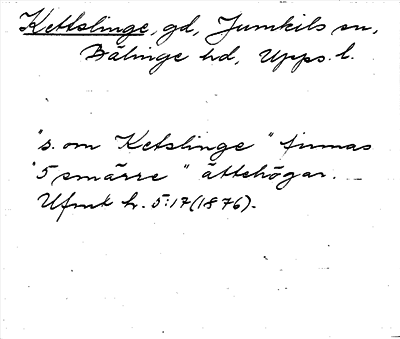 Kettslinge, gd, Jumkils sn,
Bälinge hd, Upps. l.
"s. om Ketslinge" finnas
"5 smärre" ättehögar.
Ufmt h. 5:17 (1876).